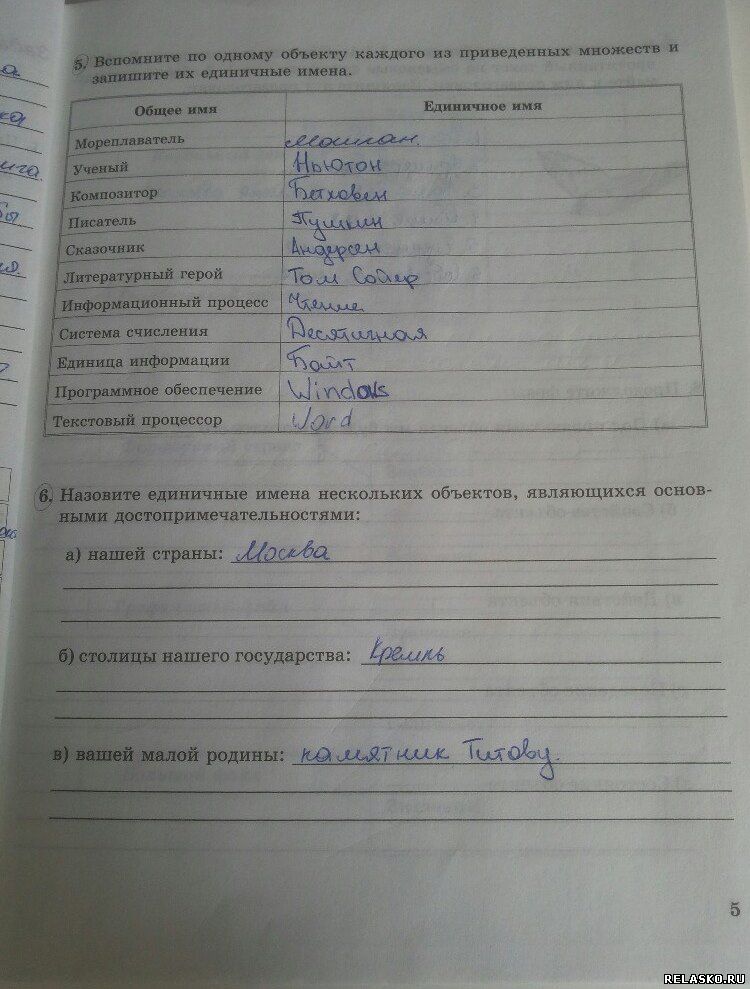 5. Вспомните по одному объекту каждого из приведенных множеств и
запишите их единичные имена.
Общее имя Единичное имя
Мореплаватель
Ученый Ньютон
Композитор Бетховен
Писатель Пушкин
Сказочник Андерсен
Литературный герой Том Сойер
Информационный процесс Чтение
Система счисления Десятичная
Единица информации Байт
Программное обеспечение Windows
Текстовый процессор Word
6. Назовите единичные имена нескольких объектов, являющихся основ-
ными достопримечательностями:
а) нашей страны: Москва
б) столицы нашего государства: Кремль
в) вашей малой родины: памятник Титову.
5
RELASKO.RU